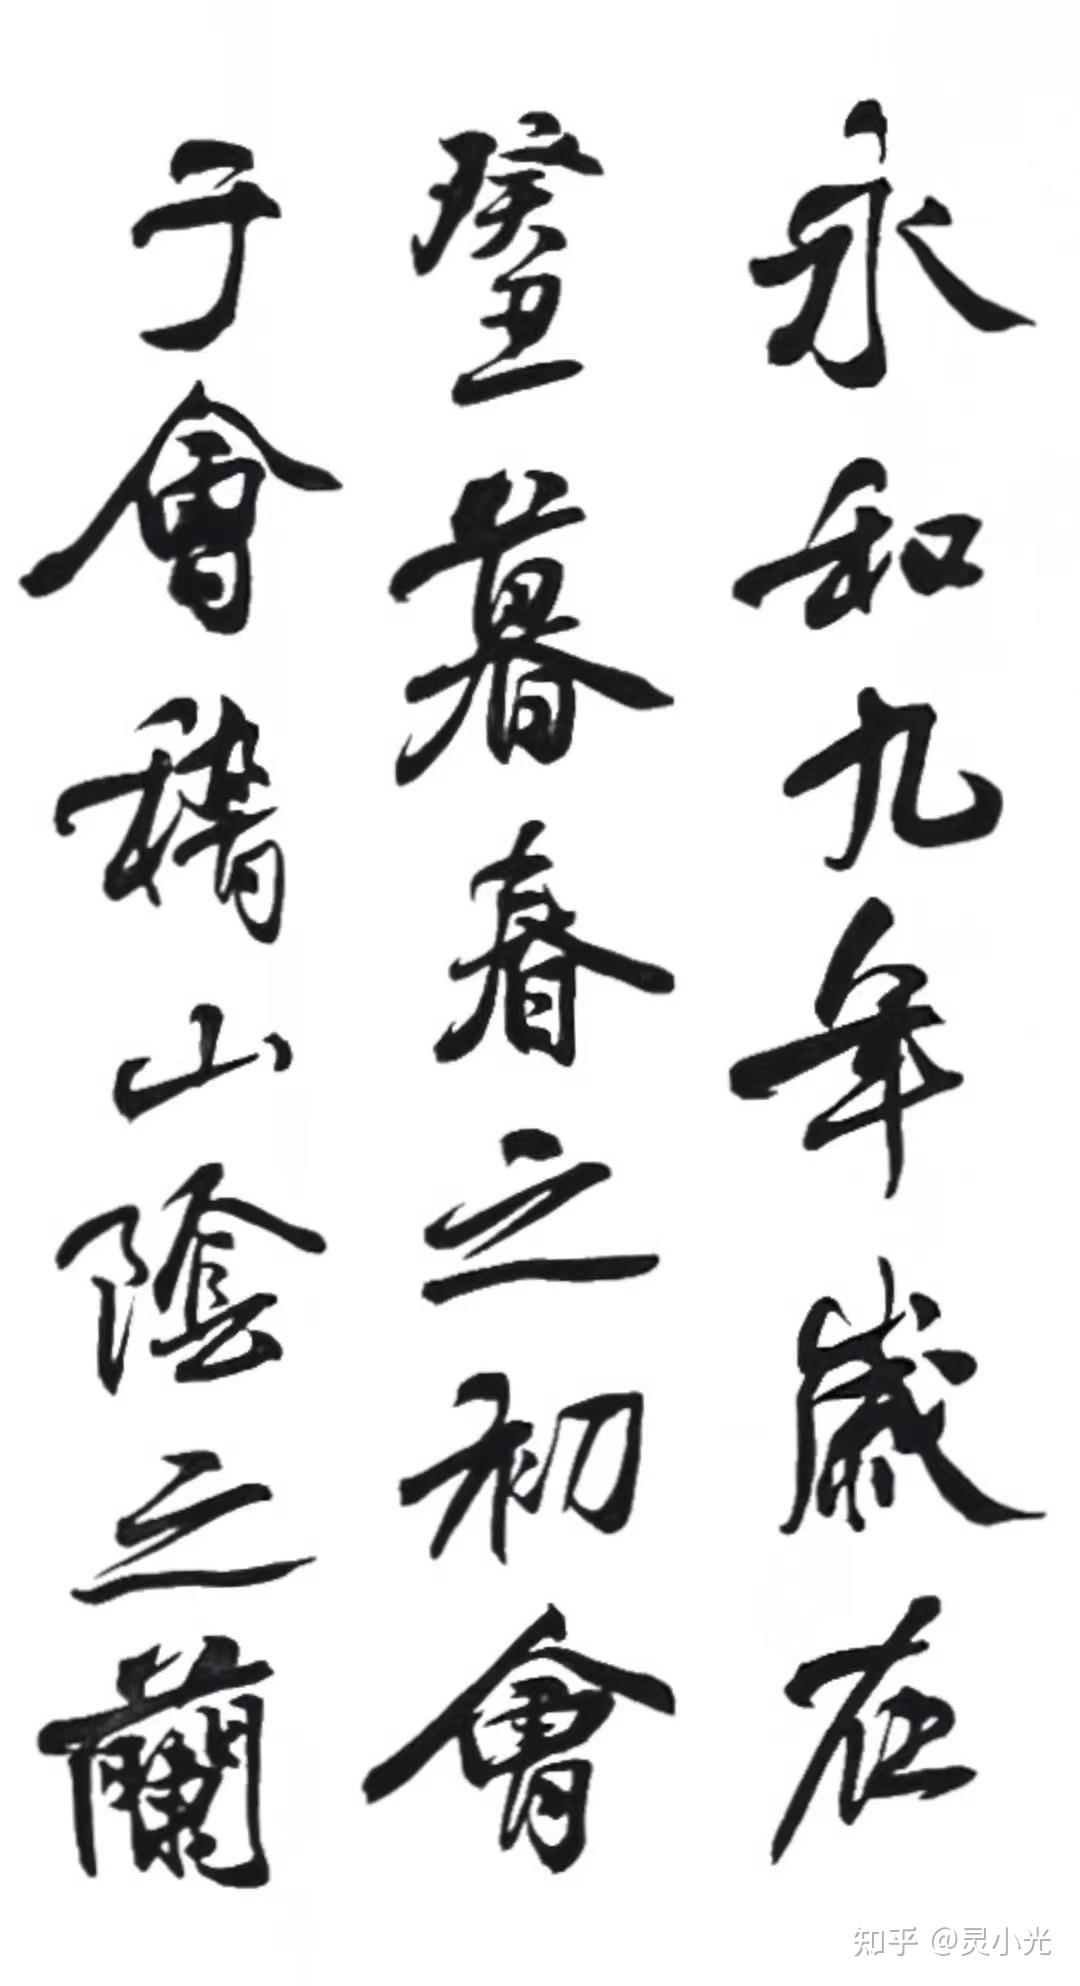 永和九年歲在
癸丑暮春之初會
于會稽山陰之蘭
知乎 @灵小光